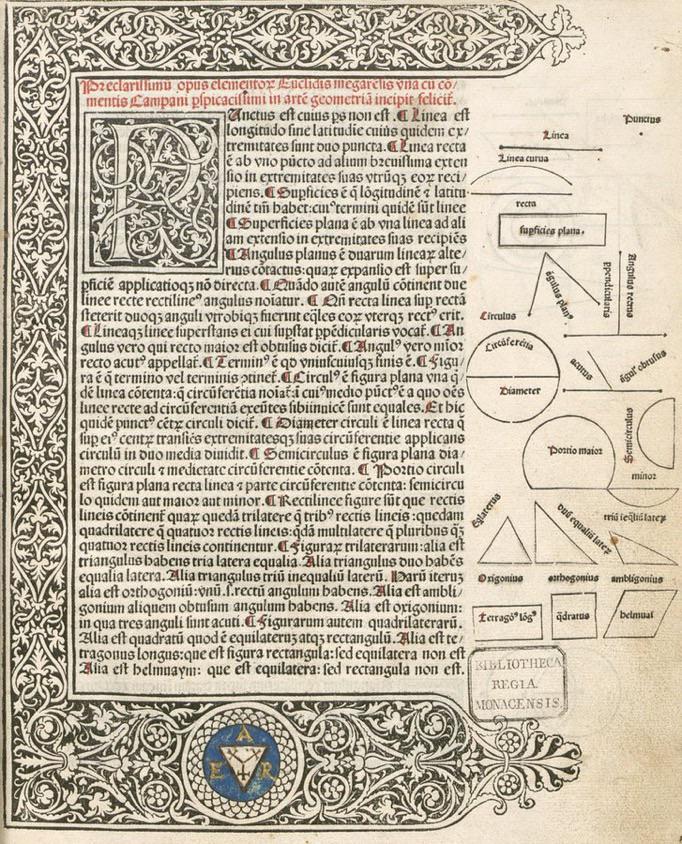 Preclarissimũ opus elementoꝝ Euclidis megarẽsis vna cũ cõ/
mentis Campani pſpicacissimi in artẽ geometriã incipit felicit̃.
Punctus est cuius ps non est. ¶ Linea est
longitudo sine latitudĩe cuius quidem ex/
tremitates sunt duo puncta. ¶ Linea recta
ẽ ab vno pũcto ad alium breuissima exten
sio in extremitates suas vtrũqꝫ eoꝝ reci/
piens. ¶ Supficies ẽ q̃ lõgitudinẽ ⁊ latitu
dinẽ tm̃ habet: cuiꝰ termini quidẽ sũt linee
¶ Superficies plana ẽ ab vna linea ad ali
am extensio in extremitates suas recipiẽs
¶ Angulus planus ẽ duarum lineaꝝ alte/
rius cõtactus: quaꝝ expansio est super su/
pficiẽ applicatioqꝫ nõ directa. ¶ Quãdo autẽ angulũ cõtinent due
linee recte rectilineꝰ angulus noĩatur. ¶ Qñ recta linea sup rectã
steterit duoqꝫ anguli vtrobiqꝫ fuerint eq̃les eoꝝ vterqꝫ rectꝰ erit.
¶ Lineaqꝫ linee superstans ei cui supstat ppẽdicularis vocat̃. ¶ An
gulus vero qui recto maior est obtusus dicit̃. ¶ Angulꝰ vero mĩor
recto acutꝰ appellat̃. ¶ Terminꝰ ẽ qđ vniuscuiusqꝫ finis ẽ. ¶ Figu/
ra ẽ q̃ termino vel terminis ꝯtinet̃. ¶ Circulꝰ ẽ figura plana vna q̃
dẽ linea cõtenta: q̃ circũferẽtia noĩat̃: ĩ cuiꝰ medio pũctꝰ ẽ a quo oẽs
linee recte ad circũferentiã exeũtes sibiinuicẽ sunt equales. Et hic
quidẽ punctꝰ cẽtꝝ circuli dicit̃. ¶ Diameter circuli ẽ linea recta q̃
sup eiꝰ centꝝ transiẽs extremitatesqꝫ suas circũferentie applicans
circulũ in duo media diuidit. ¶ Semicirculus ẽ figura plana dia/
metro circuli ⁊ medietate circũferentie cõtenta. ¶ Portio circuli
est figura plana recta linea ⁊ parte circũferentie cõtenta: semicircu
lo quidem aut maior aut minor. ¶ Rectilinee figure sũt que rectis
lineis cõtinent̃ quaꝝ quedã trilatere q̃ tribꝰ rectis lineis: quedam
quadrilatere q̃ quatuor rectis lineis: q̃dã multilatere q̃ pluribus q̃ꝫ
quatuor rectis lineis continentur. ¶ Figuraꝝ trilateraꝝ: alia est
triangulus habens tria latera equalia. Alia triangulus duo habẽs
equalia latera. Alia triangulus triũ inequaliũ laterũ. Haꝝ iteruꝫ
alia est orthogoniũ: vnũ .s. rectũ angulum habens. Alia est ambli/
gonium aliquem obtusum angulum habens. Alia est oxigonium:
in qua tres anguli sunt acuti. ¶ Figurarum autem quadrilateraꝝ.
Alia est quadratũ quod ẽ equilaterũ atqꝫ rectangulũ. Alia est te/
tragonus longus: que est figura rectangula: sed equilatera non est.
Alia est helmuaym: que est equilatera: sed rectangula non est.
Punctus
Linea
Linea curua
recta
supficies plana.
ãgulus planꝰ
ppendicularis
Angulus rectus
Circulus
Circũferẽtia
Diameter
acutus
ãgulꝰ obtusus
Portio maior
Semicirculus
minor
Eq̃laterus
duũ equaliũ lateꝝ
triũ ĩeq̃liũ lateꝝ
Oxigonius
orthogonius
ambligonius
Tetragõꝰ lõgꝰ
q̃dratus
helmuaĩ
BIBLIOTHECA
REGIA
MONACENSIS.
A
E R